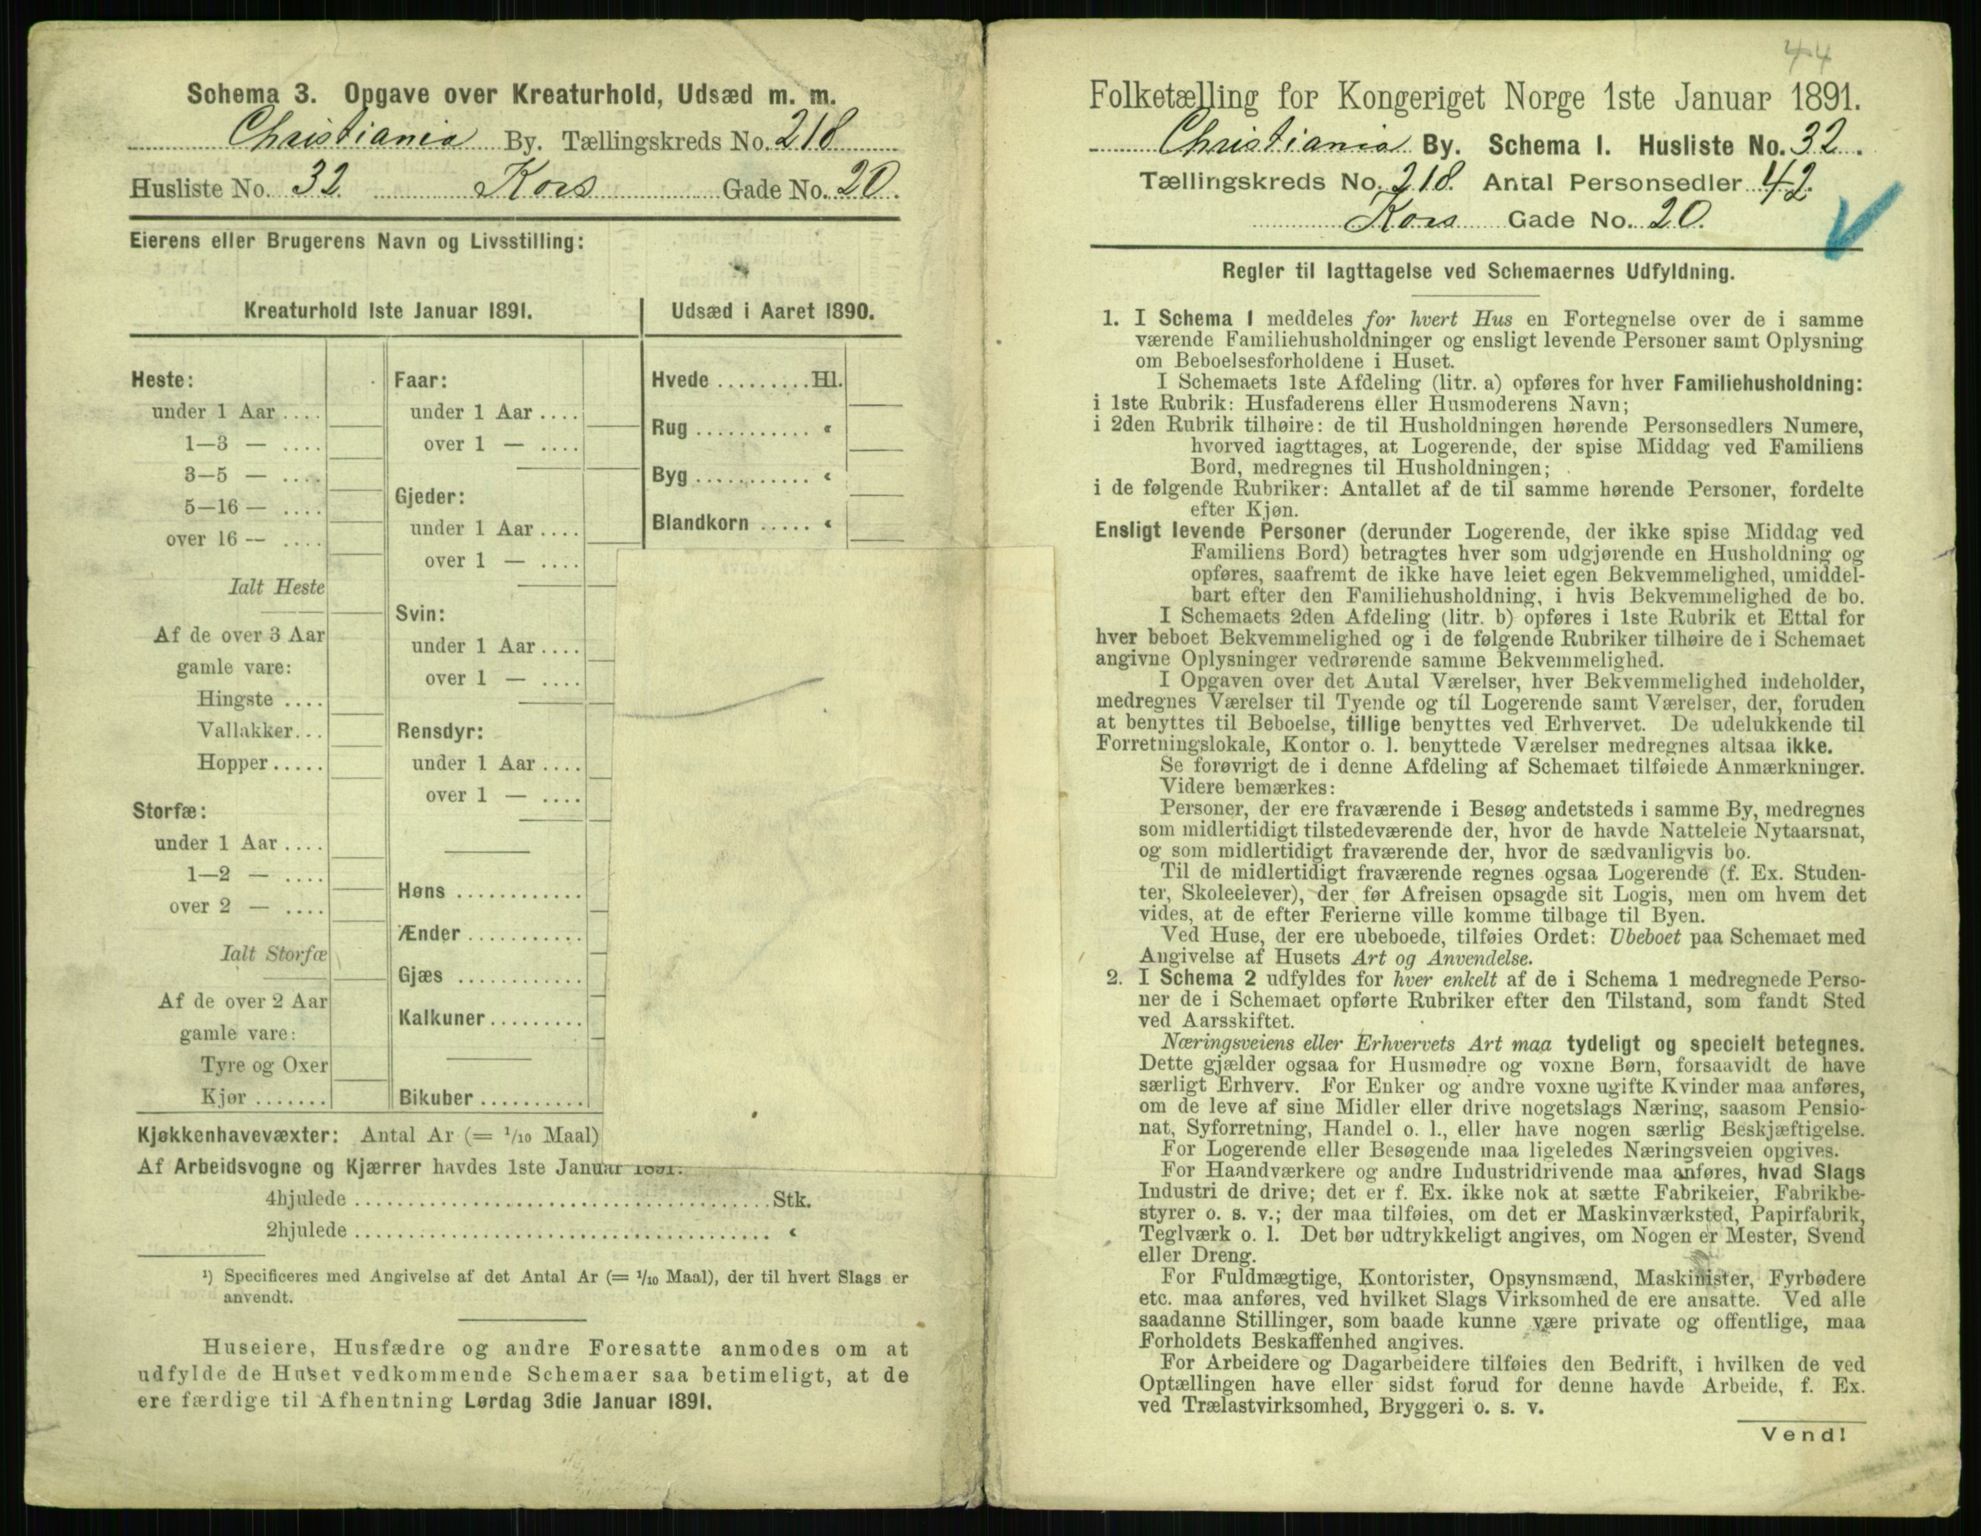 Schema 3. Opgave over Kreaturhold, Udsæd m. m.
Christiania By. Tællingskreds No. 218
Husliste No. 32. Kors Gade No. 20.
Eierens eller Brugerens Navn og Livsstilling:
Kreaturhold 1ste Januar 1891.
Heste:
under 1 Aar ....
1—3 — ....
3—5 — ....
5—16 — ....
over 16 — ....
Ialt Heste
Af de over 3 Aar
gamle vare:
Hingste ....
Vallakker...
Hopper .....
Storfæ:
under 1 Aar ....
1—2 — ....
over 2 — ....
Ialt Storfæ
Af de over 2 Aar
gamle vare:
Tyre og Oxer
Kjør .......
Faar:
under 1 Aar ....
over 1 — ....
Gjeder:
under 1 Aar ....
over 1 — ....
Svin:
under 1 Aar ....
over 1 — ....
Rensdyr:
under 1 Aar ....
over 1 — ....
Høns ............
Ænder ...........
Gjæs ............
Kalkuner.........
Bikuber ..........
Udsæd i Aaret 1890.
Hvede .........Hl.
Rug ........... "
Byg ........... "
Blandkorn ..... "
Kjøkkenhavevæxter: Antal Ar (= 1/10 Maal)
Af Arbeidsvogne og Kjærrer havdes 1ste Januar 1891:
4hjulede ......................................Stk.
2hjulede ...................................... "
¹) Specificeres med Angivelse af det Antal Ar (= 1/10 Maal), der til hvert Slags er
anvendt.
Huseiere, Husfædre og andre Foresatte anmodes om at
udfylde de Huset vedkommende Schemaer saa betimeligt, at de
ere færdige til Afhentning Lørdag 3die Januar 1891.
44
Folketælling for Kongeriget Norge 1ste Januar 1891.
Christiania By. Schema I. Husliste No. 32.
Tællingskreds No. 218. Antal Personsedler 42.
Kors Gade No. 20.
Regler til Iagttagelse ved Schemaernes Udfyldning.
1. I Schema 1 meddeles for hvert Hus en Fortegnelse over de i samme
værende Familiehusholdninger og ensligt levende Personer samt Oplysning
om Beboelsesforholdene i Huset.
I Schemaets 1ste Afdeling (litr. a) opføres for hver Familiehusholdning:
i 1ste Rubrik: Husfaderens eller Husmoderens Navn;
i 2den Rubrik tilhøire: de til Husholdningen hørende Personsedlers Numere,
hvorved iagttages, at Logerende, der spise Middag ved Familiens
Bord, medregnes til Husholdningen;
i de følgende Rubriker: Antallet af de til samme hørende Personer, fordelte
efter Kjøn.
Ensligt levende Personer (derunder Logerende, der ikke spise Middag ved
Familiens Bord) betragtes hver som udgjørende en Husholdning og
opføres, saafremt de ikke have leiet egen Bekvemmelighed, umiddel-
bart efter den Familiehusholdning, i hvis Bekvemmelighed de bo.
I Schemaets 2den Afdeling (litr. b) opføres i 1ste Rubrik et Ettal for
hver beboet Bekvemmelighed og i de følgende Rubriker tilhøire de i Schemaet
angivne Oplysninger vedrørende samme Bekvemmelighed.
I Opgaven over det Antal Værelser, hver Bekvemmelighed indeholder,
medregnes Værelser til Tyende og til Logerende samt Værelser, der, foruden
at benyttes til Beboelse, tillige benyttes ved Erhvervet. De udelukkende til
Forretningslokale, Kontor o. l. benyttede Værelser medregnes altsaa ikke.
Se forøvrigt de i denne Afdeling af Schemaet tilføiede Anmærkninger.
Videre bemærkes:
Personer, der ere fraværende i Besøg andetsteds i samme By, medregnes
som midlertidigt tilstedeværende der, hvor de havde Natteleie Nytaarsnat,
og som midlertidigt fraværende der, hvor de sædvanligvis bo.
Til de midlertidigt fraværende regnes ogsaa Logerende (f. Ex. Studen-
ter, Skoleelever), der før Afreisen opsagde sit Logis, men om hvem det
vides, at de efter Ferierne ville komme tilbage til Byen.
Ved Huse, der ere ubeboede, tilføies Ordet: Ubeboet paa Schemaet med
Angivelse af Husets Art og Anvendelse.
2. I Schema 2 udfyldes for hver enkelt af de i Schema 1 medregnede Perso-
ner de i Schemaet opførte Rubriker efter den Tilstand, som fandt Sted
ved Aarsskiftet.
Næringsveiens eller Erhvervets Art maa tydeligt og specielt betegnes.
Dette gjælder ogsaa for Husmødre og voxne Børn, forsaavidt de have
særligt Erhverv. For Enker og andre voxne ugifte Kvinder maa anføres,
om de leve af sine Midler eller drive nogetslags Næring, saasom Pensio-
nat, Syforretning, Handel o. l., eller have nogen særlig Beskjæftigelse.
For Logerende eller Besøgende maa ligeledes Næringsveien opgives.
For Haandværkere og andre Industridrivende maa anføres, hvad Slags
Industri de drive; det er f. Ex. ikke nok at sætte Fabrikeier, Fabrikbe-
styrer o. s. v.; der maa tilføies, om det er Maskinværksted, Papirfabrik,
Teglværk o. l. Det bør udtrykkeligt angives, om Nogen er Mester, Svend
eller Dreng.
For Fuldmægtige, Kontorister, Opsynsmænd, Maskinister, Fyrbødere
etc. maa anføres, ved hvilket Slags Virksomhed de ere ansatte. Ved alle
saadanne Stillinger, som baade kunne være private og offentlige, maa
Forholdets Beskaffenhed angives.
For Arbeidere og Dagarbeidere tilføies den Bedrift, i hvilken de ved
Optællingen have eller sidst forud for denne havde Arbeide, f. Ex.
ved Trælastvirksomhed, Bryggeri o. s. v.
Vend!